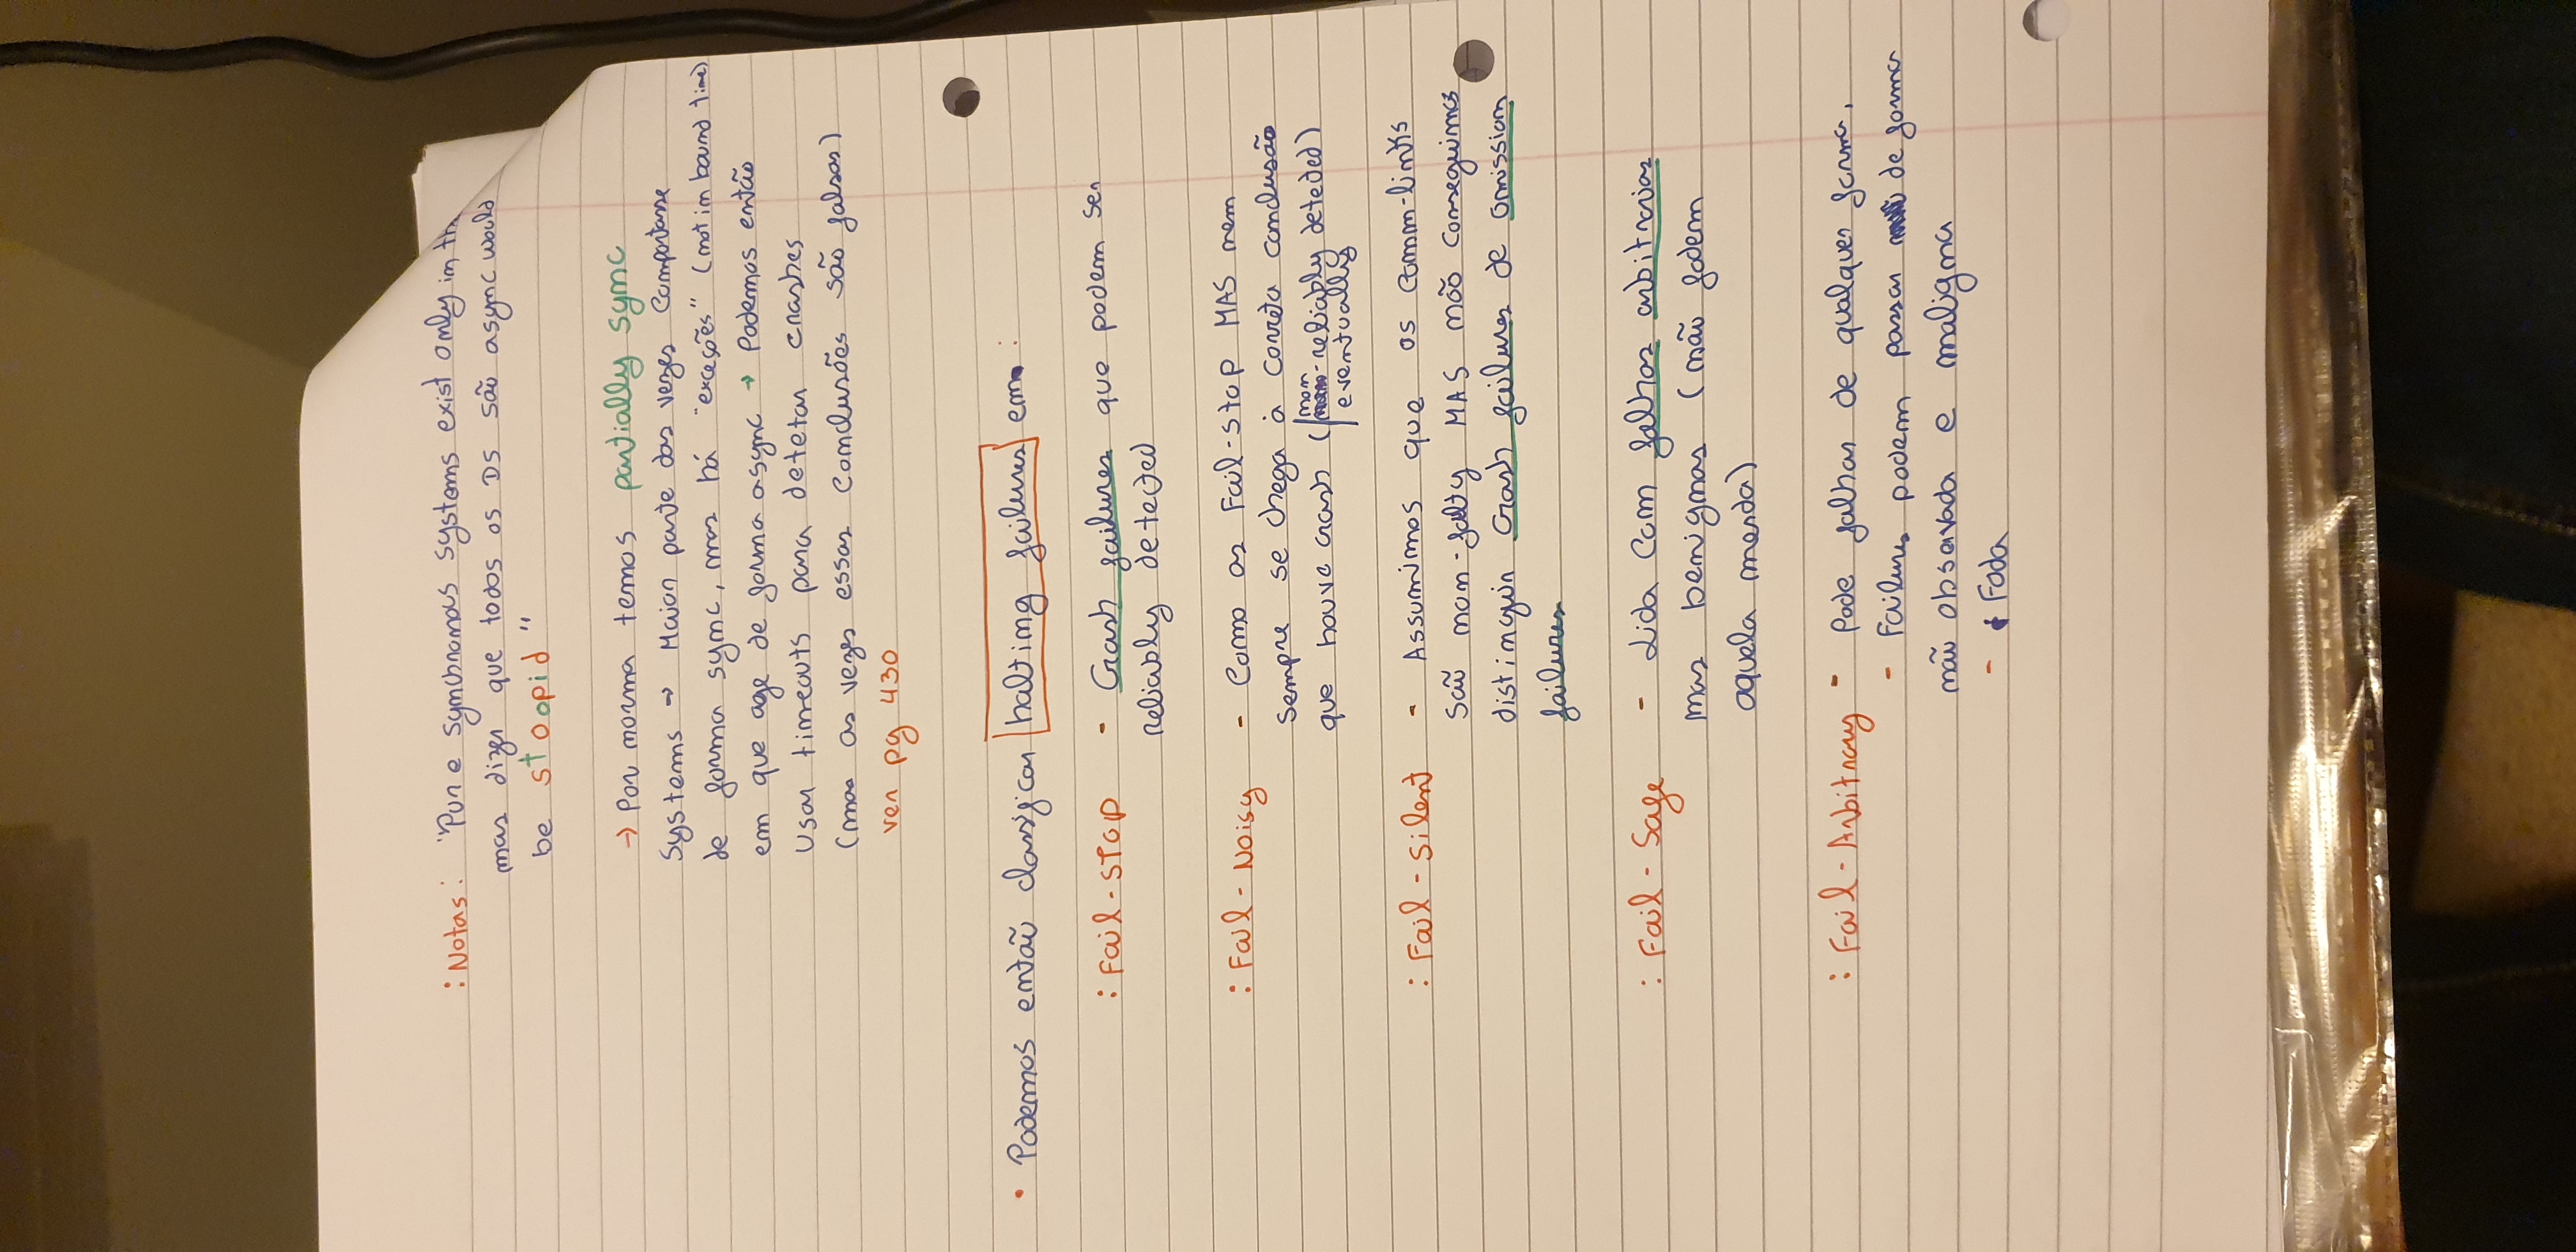 : Notas: "Pure synchronous systems exist only in th
mas dizer que todos os DS são async would
be stoopid"
→ Por norma temos partially sync
systems → Maior parte das vezes comportasse
de forma sync, mas há "exceções" (not in bound time)
em que age de forma async → Podemos então
usar timeouts para detetar crashes
(mas as vezes essas conclusões são falsas)
ver pg 430
• Podemos então classificar halting failures em:
: Fail-STOP - Crash failures que podem ser
reliably detected
: Fail-Noisy - Como as Fail-stop MAS nem
sempre se chega à correta conclusão
que houve crash (non-reliably detected)
eventually
: Fail-Silent - Assumimos que os comm-links
são non-falty MAS não conseguimos
distinguir crash failures de omission
failures
: Fail-Safe - Lida com falhas arbitrarias
mas benignas (não fodem
aquela merda)
: Fail-Arbitrary - Pode falhar de qualquer forma,
- Failures podem passar de forma
não observada e maligna
- Foda